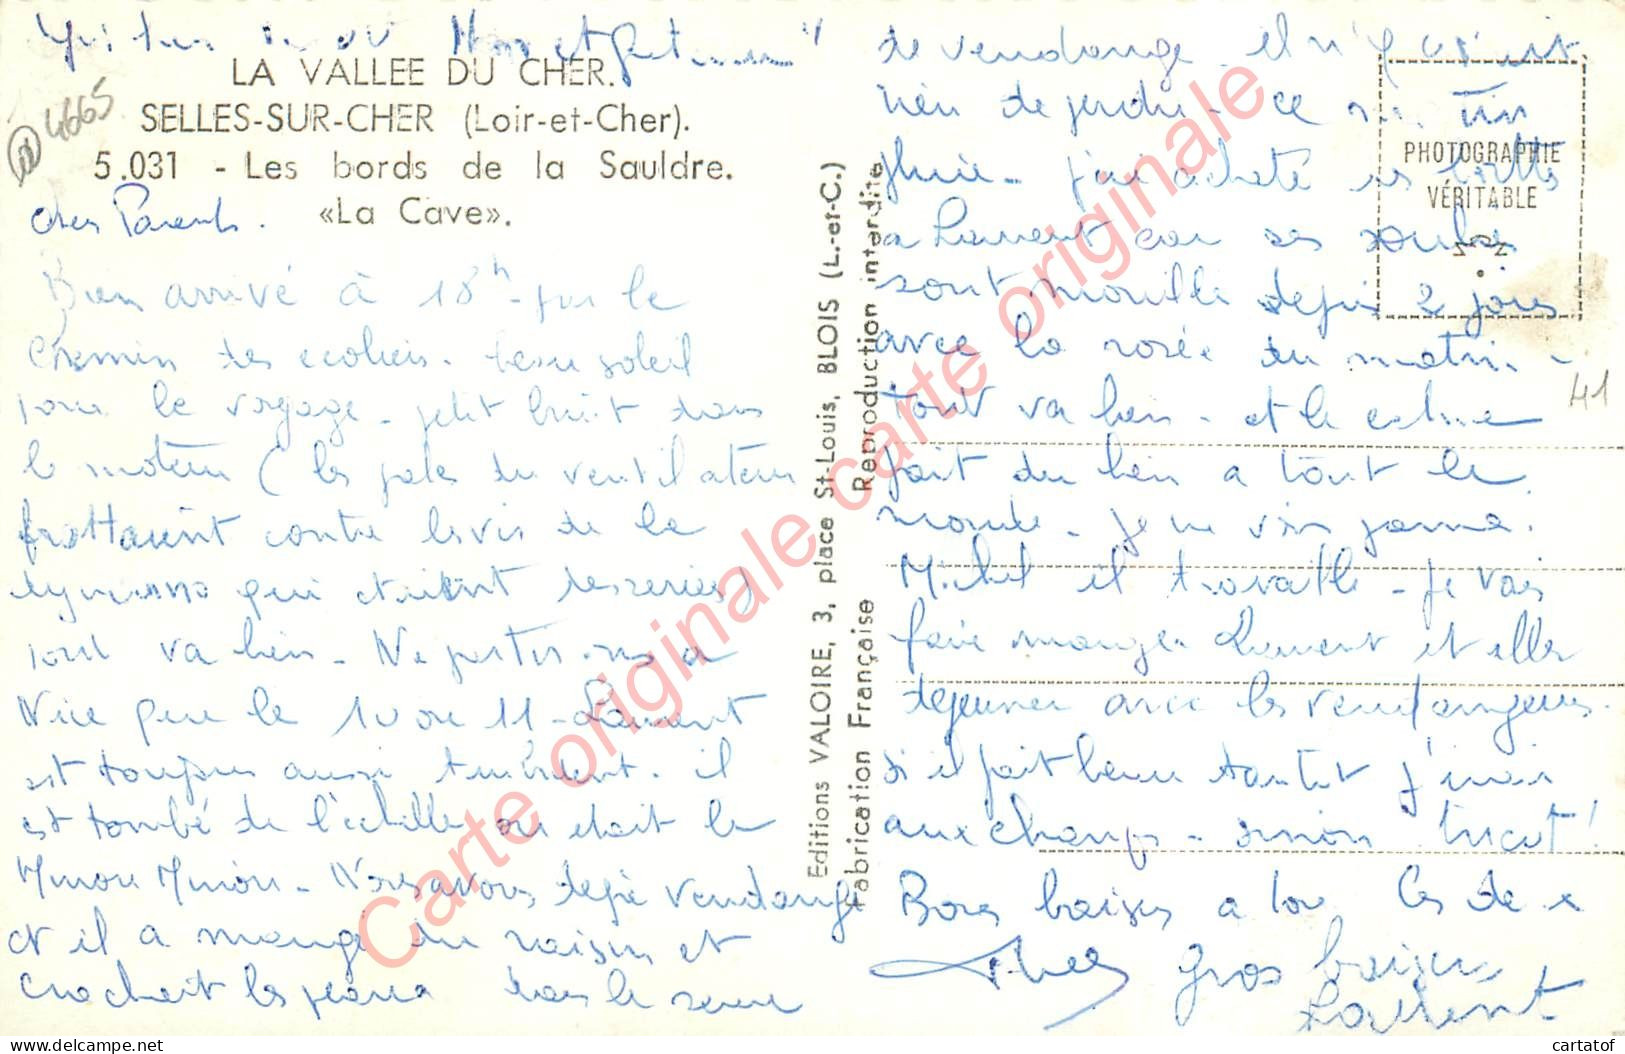 LA VALLEE DU CHER.
SELLES-SUR-CHER (Loir-et-Cher).
5.031 - Les bords de la Sauldre.
«La Cave».
4665
chers Parents.
Bien arrivé à 18h - par le
chemin des ecoliers. beau soleil
pour le voyage - petit bruit dans
le moteur ( les pales du ventilateur
frottaient contre les vis de la
qui etaient desserrées)
tout va bien - Ne partez à
Nice que le 10 ou 11 - Laurent
est toujours aussi turbulent. il
est tombé de l'échelle ou etait le
Minou Minou - Nous avons deja vendangé
et il a mangé du raisin et
crachait les peaux dans le seau
de vendange il n'y avait
rien de perdu - ce matin
pluie - j'ai acheté des bottes
a Laurent car ses souliers
sont mouillé depuis 2 jours
avec la rosée du matin -
tout va bien - et le calme
fait du bien a tout le
monde - je ne vois jamais
Michel il travaille - Je vais
faire manger Laurent et aller
dejeuner avec les vendangeurs.
si il fait beau tantot j'irai
aux champs - sinon tricot !
Bons baisers a tous les deux
gros baisers
Laurent
PHOTOGRAPHIE
VÉRITABLE
41
Editions VALOIRE, 3, place St-Louis, BLOIS (L.-et-C.)
Fabrication Française
Reproduction interdite
Carte originale carte originale
cartatof